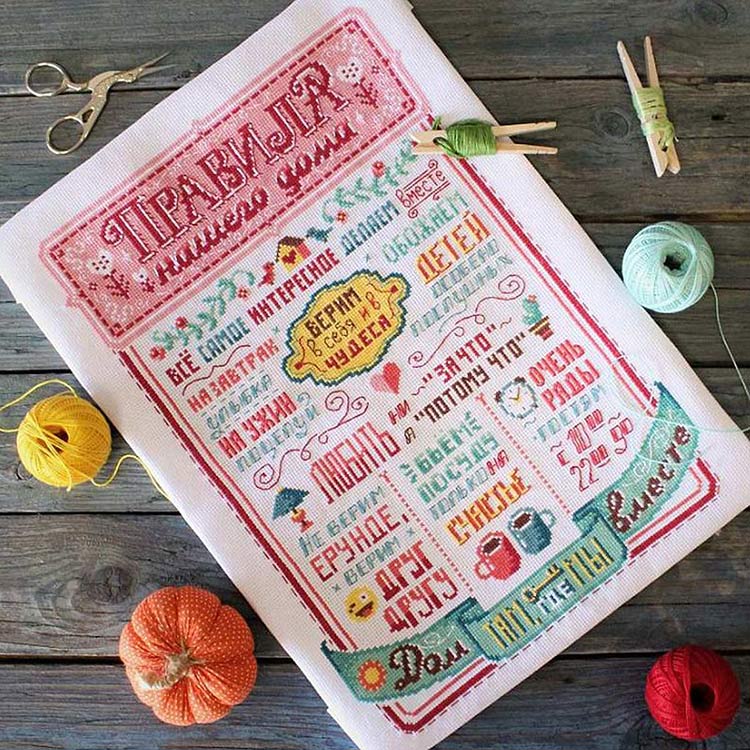 ПРАВИЛА
нашего дома
ВСЁ САМОЕ ИНТЕРЕСНОЕ ДЕЛАЕМ ВМЕСТЕ
НА ЗАВТРАК
УЛЫБКА
НА УЖИН
ПОЦЕЛУЙ
ВЕРИМ
В СЕБЯ И В
ЧУДЕСА
ОБОЖАЕМ
ДЕТЕЙ
ОСОБЕННО
ПОСЛУШНЫХ
ЛЮБИТЬ НИ "ЗА ЧТО"
А "ПОТОМУ ЧТО"
НЕ ВЕРИМ
ЕРУНДЕ,
ВЕРИМ
ДРУГ
ДРУГУ
БЬЁМ
ПОСУДУ
ТОЛЬКО НА
СЧАСТЬЕ
ОЧЕНЬ
РАДЫ
ГОСТЯМ
С 10 00 ДО
22 00
Дом ТАМ, ГДЕ МЫ вместе